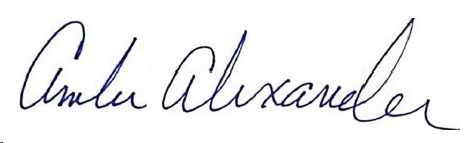 Amber Alexander